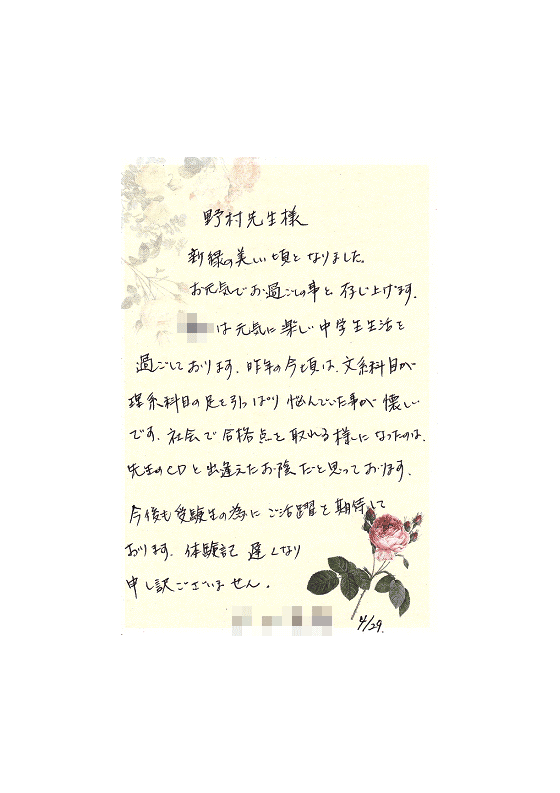 野村先生様
新緑の美しい頃となりました。
お元気でお過ごしの事と存じ上げます。
は元気に楽しい中学生生活を
過ごしております。昨年の今頃は、文系科目が
理系科目の足を引っぱり悩んでいた事が懐しい
です。社会で合格点を取れる様になったのは、
先生のCDと出逢えたお陰だと思っております。
今後も受験生の為にご活躍を期待して
おります。体験記遅くなり
申し訳ございません。
4/29.